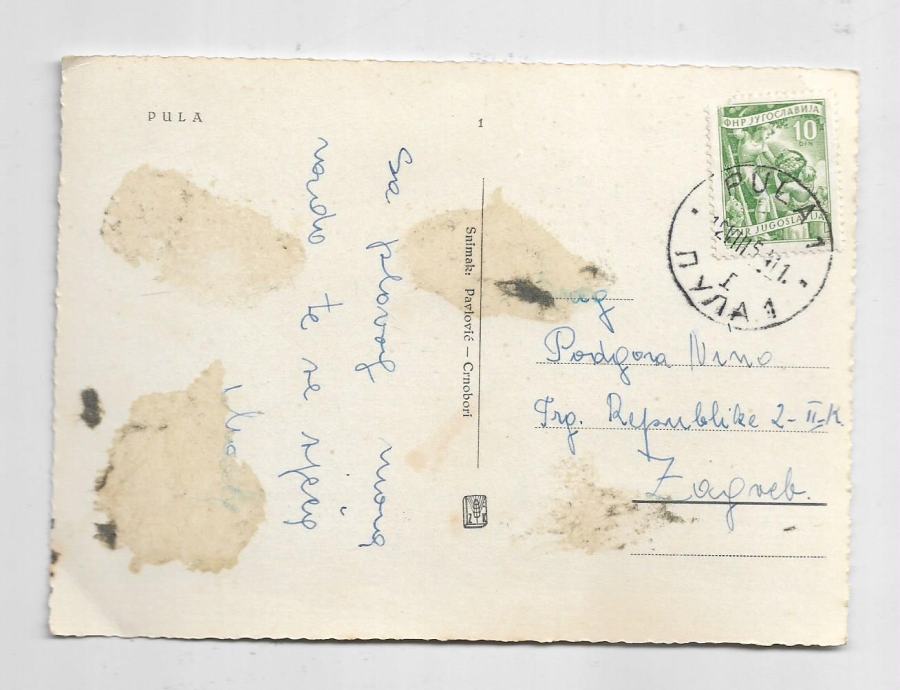 PULA
1
Sa plavog mora
rado te se sjeća
Snimak: Pavlović — Crnobori
ФНР ЈУГОСЛАВИЈА
10
DIN
FNR JUGOSLAVIJA
PULA 1
ПУЛА 1
Podgora Nino
Trg. Republike 2-II-K
Zagreb.